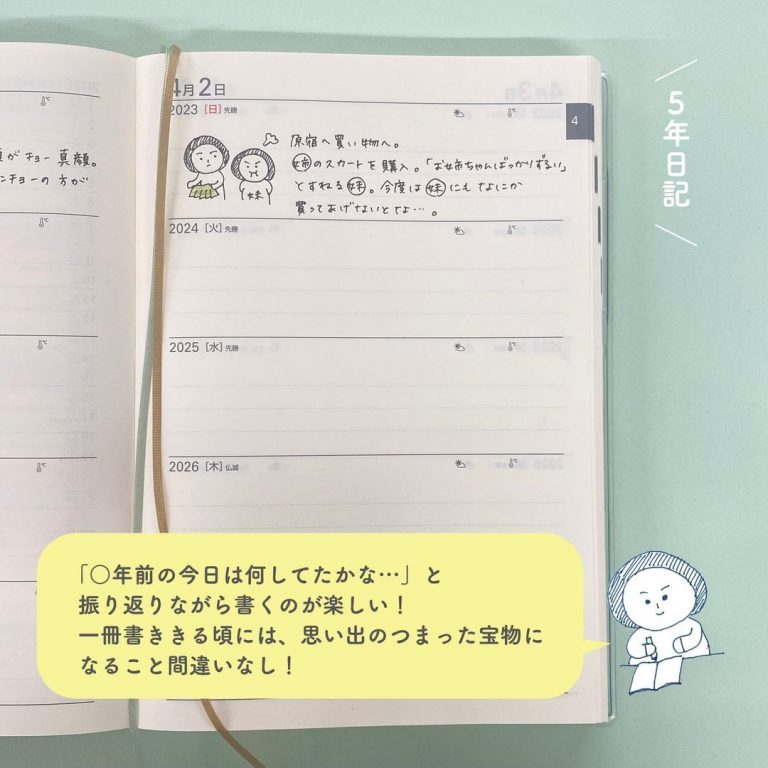 4月2日
2023 [日] 先勝
4
真がチョー真顔。
ンチョーの方が
原宿へ買い物へ。
姉のスカートを購入。「お姉ちゃんばっかりずるい」
とすねる妹。今度は妹にもなにか
買ってあげないとなよ…。
妹
2024 [火] 先勝
2025 [水] 先勝
2026 [木] 仏滅
5年日記
「○年前の今日は何してたかな…」と
振り返りながら書くのが楽しい!
一冊書ききる頃には、思い出のつまった宝物に
なること間違いなし!